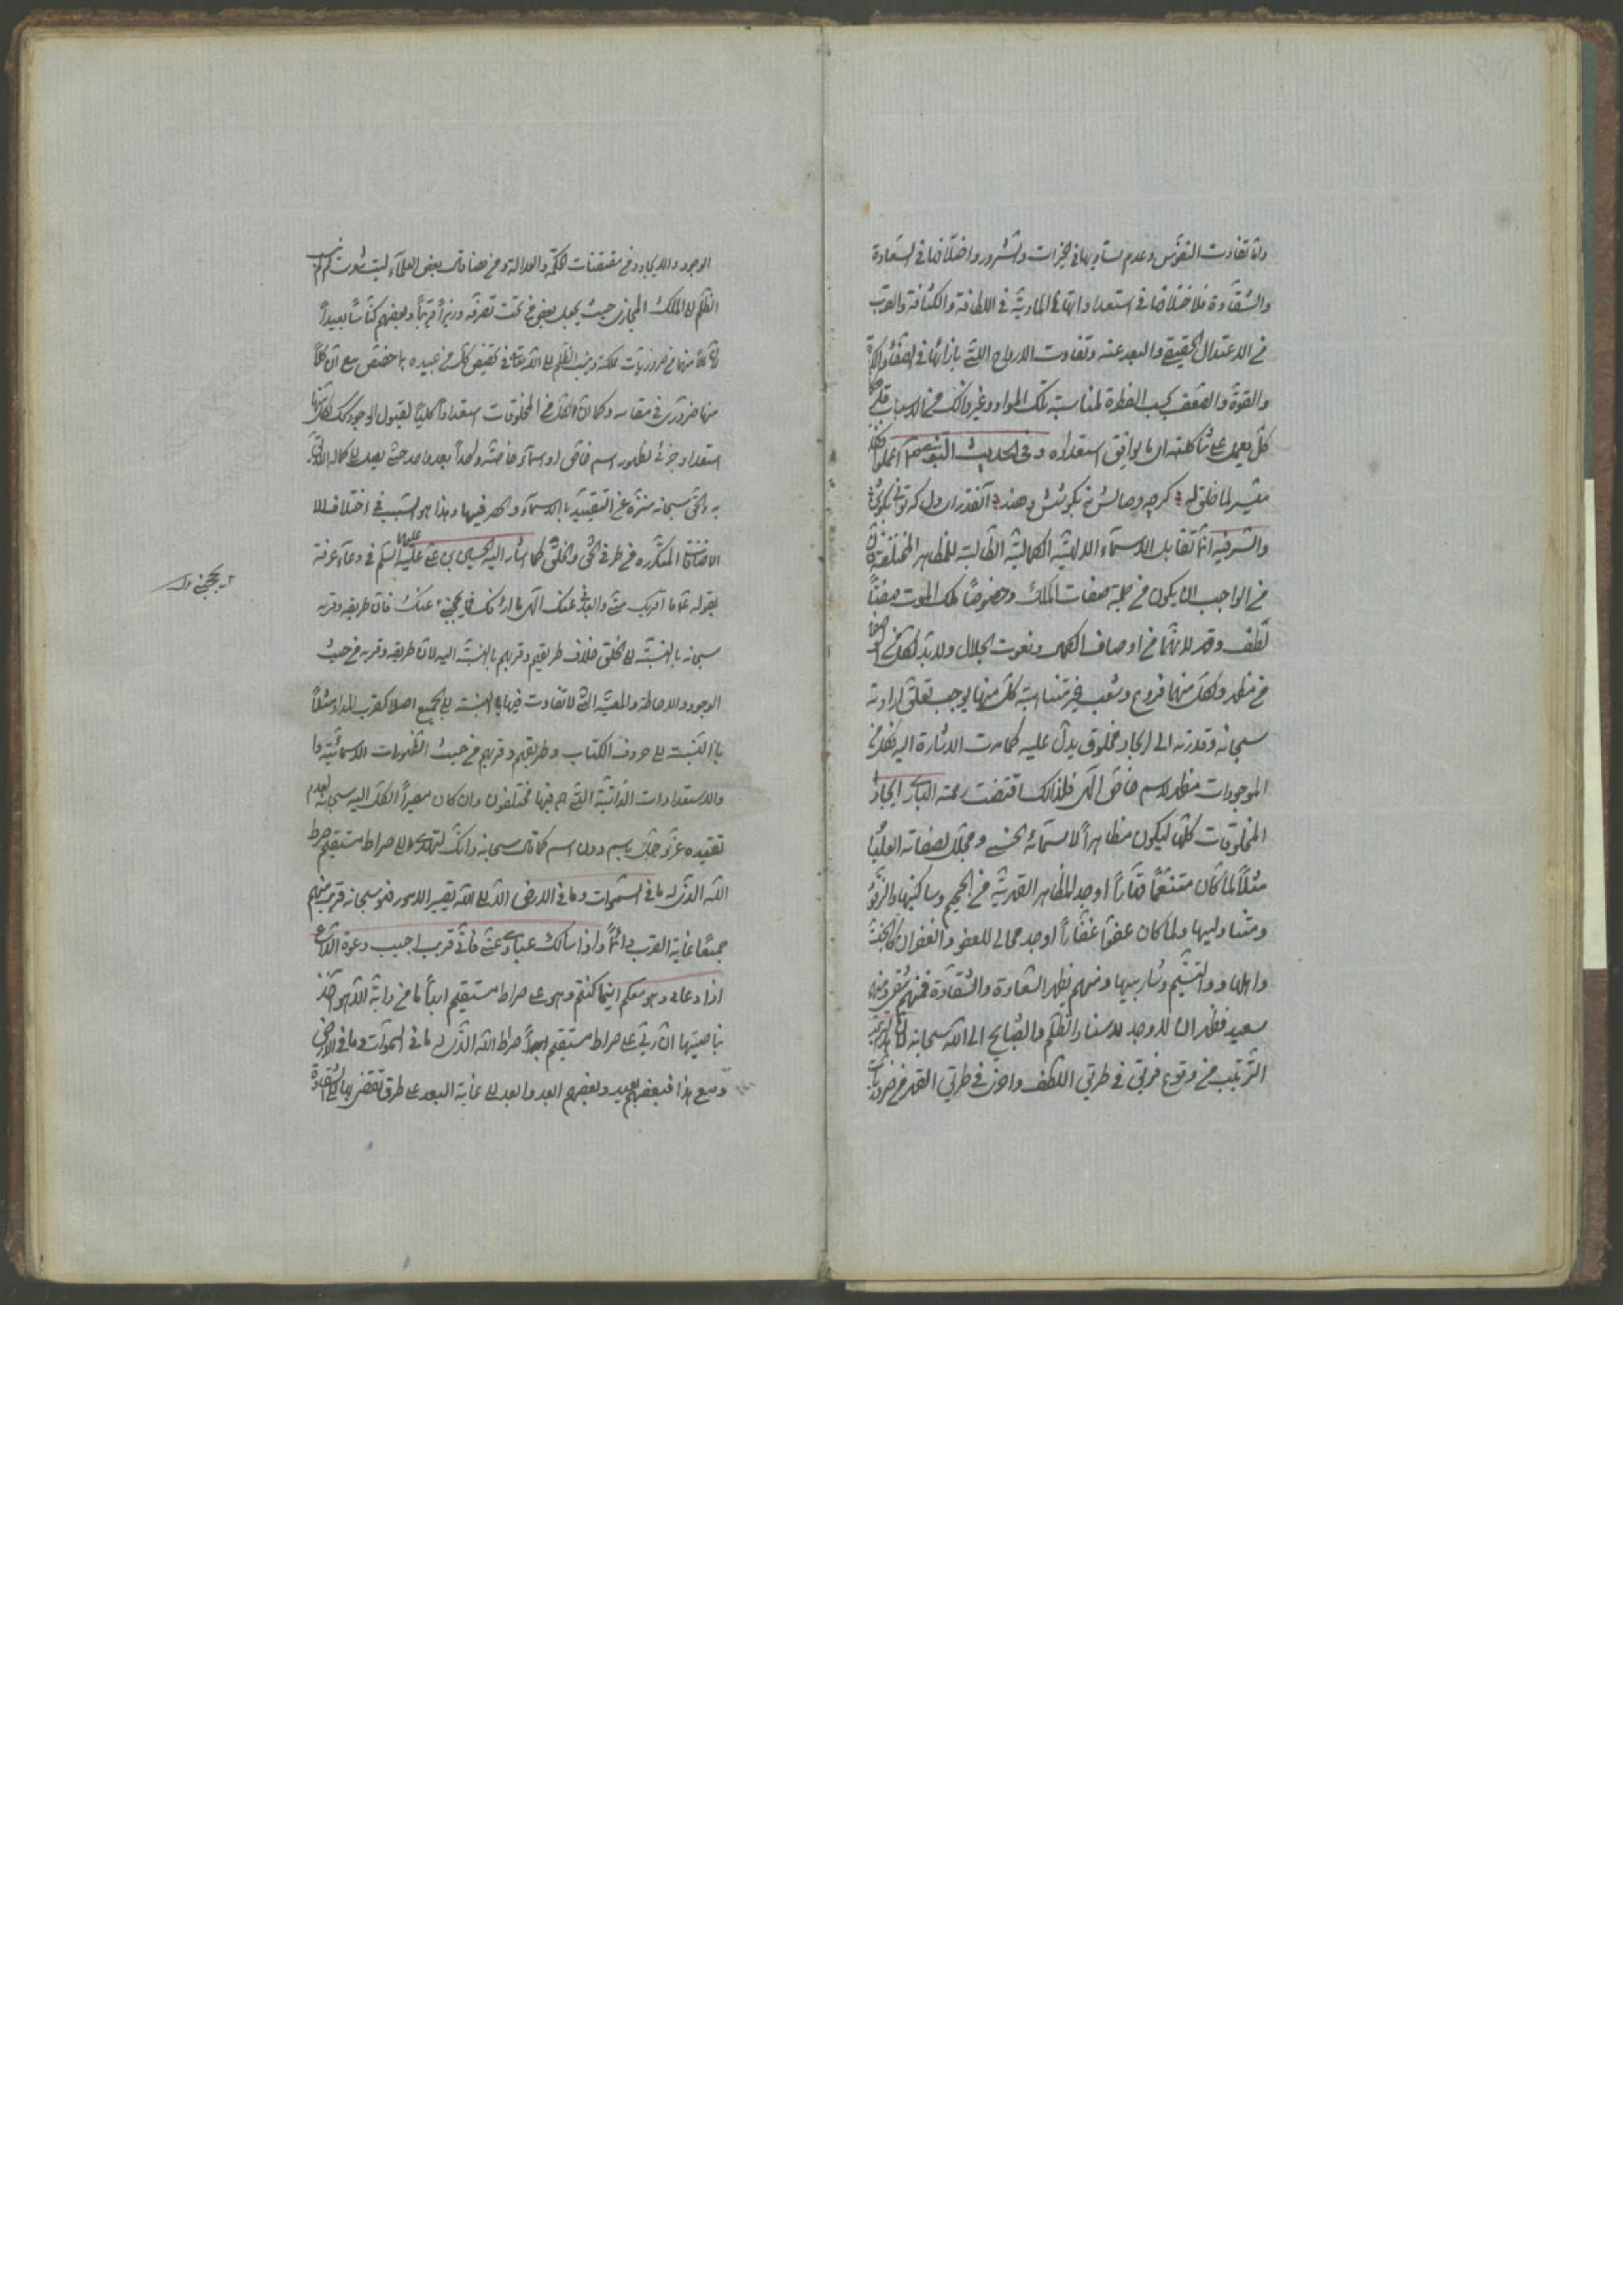 واما تفاوت النفوس وعدم تساويها في الخيرات والشرور واختلافها في السعادة
والشقاوة فلاختلافها في استعداداتها المادية في اللطافة والكثافة والقرب
من الاعتدال الحقيقي والبعد عنه وتفاوت الارواح التي بازائها في الصفاء والكدرة
والقوة والضعف بحسب الفطرة لمناسبة تلك المواد وغير ذلك من الاسباب قل
كل يعمل على شاكلته اى ما يوافق استعداده وفى الحديث النبوي اعملوا فكل
ميسر لما خلق له
والسر فيه انما تقابل الاسماء الالهية الكمالية الطالبة للمظاهر المختلفة
في الواجب ان يكون من جملة صفات الملك وخصوصا ملك الملوك
لطف وقهر لانهما من اوصاف الكمال ونعوت الجلال ولابد لكل من
من مظهر ولكل منهما فروع وشعب غير متناهية كل منها يوجب تعلق ارادته
سبحانه وقدرته الى ايجاد مخلوق يدل عليه كما مرت الاشارة اليه فكل من
الموجودات مظهر لاسم خاص الهى فلذلك اقتضت رحمة البارى ايجاد
المخلوقات كلها ليكون مظاهرا لاسمائه الحسنى ومجلى لصفاته العليا
مثلا لما كان منتقما قهارا اوجد المظاهر القهرية من الجحيم وساكنيها والزقوم
ومتناوليها ولما كان عفوا غفارا اوجد مجالى للعفو والغفران كالجنة
واهلها والتسنيم وشاربيها ومنهم تظهر السعادة والشقاوة فمنهم شقى ومنهم
سعيد فظهر ان لا وجه لاسناد الظلم والقبايح الى الله سبحانه لان هذا
الترتيب من وقوع فريق في طريق اللطف واخر في طريق القهر من ضروريات
الوجود والايجاد ومن مقتضيات الحكمة والعدالة ومن هنا قال بعض العلماء ليت شعرى لم لم ينسب
الظلم الى الملك المجازى حيث يجعل بعض من تحت تصرفه وزيرا قريبا وبعضهم كناسا بعيدا
لان كلا منهما من ضروريات مملكته وينسب الظلم الى الله تعالى في تخصيص كل من عبيده بما خصص مع ان كلا
منها ضرورى في مقامه وكما ان لكل من المخلوقات استعدادا كليا لقبول الوجود كذلك لكل منها
استعداد جزئى لظهور اسم خاص او اسماء خاصة واحدا بعد واحد حتى يصل الى كماله اللائق
به والحق سبحانه منزه عن التقييد بالاسماء والحصر فيها وهذا هو السبب في اختلاف
الاضافة المتكررة من طرفى الحق والخلق كما اشار اليه الحسين بن على عليهما السلام في دعاء عرفة
بقوله ما اقربك منى وابعدنى عنك الهى ما ارأفك بى فما الذى يحجبنى عنك فان طريقه وقربه
سبحانه بالنسبة الى الخلق خلاف طريقهم وقربهم بالنسبة اليه لان طريقه وقربه من حيث
الوجود والاحاطة والمعية التى لا تفاوت فيها بالنسبة الى الجميع اصلا كقرب المداد مثلا
بالنسبة الى حروف الكتاب وطريقهم وقربهم من حيث الظهورات الاسمائية وا
والاستعدادات الذاتية التى هم فيها مختلفون وان كان مصير الكل اليه سبحانه لعدم
تقيده عز وجل باسم دون اسم كما قال سبحانه وانك لتهدى الى صراط مستقيم صراط
الله الذى له ما في السموات وما في الارض الا الى الله تصير الامور فهو سبحانه قريب منهم
جميعا غاية القرب دائما واذا سالك عبادى عنى فانى قريب اجيب دعوة الداع
اذا دعان وهو معكم اينما كنتم وهو على صراط مستقيم ابدا ما من دابة الا هو آخذ
بناصيتها ان ربى على صراط مستقيم صراط الله الذى له ما في السموات وما في الارض
ومع هذا فبعضهم بعيد وبعضهم ابعد وابعد الى غاية البعد على طرق تقتضى